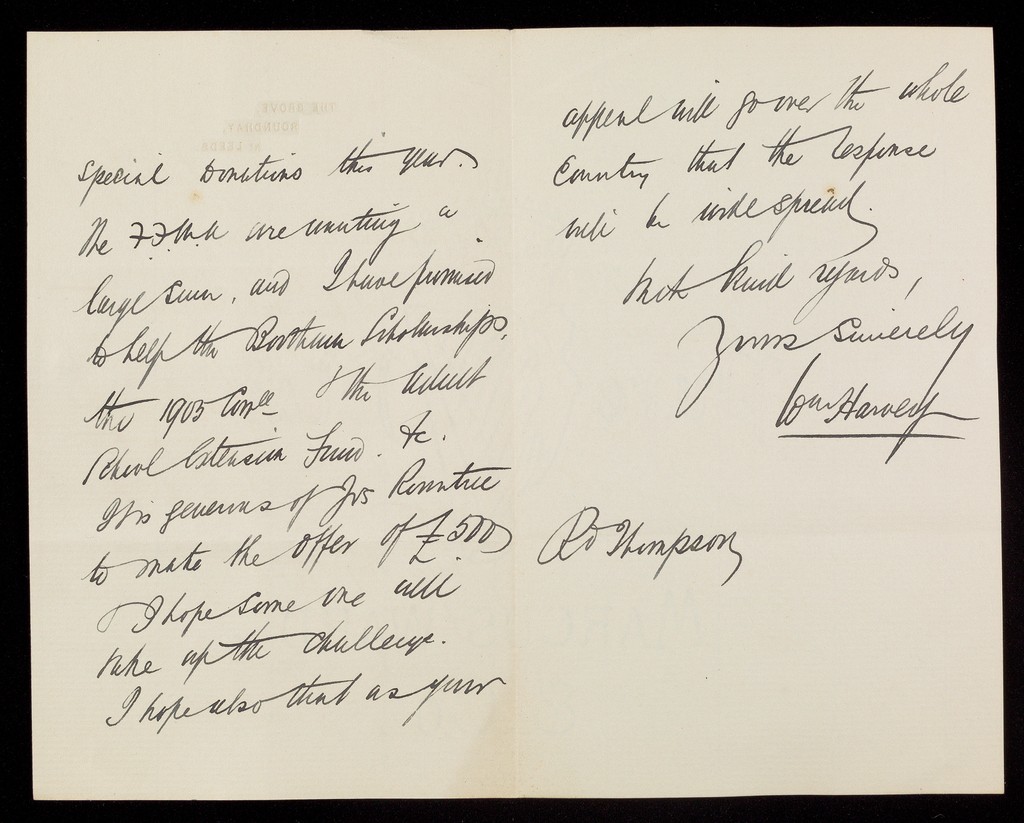 THE GROVE
ROUNDHAY,
Nr LEEDS
special Donations this year.
The F.F.M.A are wanting a
large sum, and I have promised
to help the Bootham Scholarships,
the 1905 Comee & the Adult
School Extension Fund. &c.
It is generous of Jos Rowntree
to make the offer of £500
& I hope some one will
take up the challenge.
I hope also that as your
appeal will go over the whole
Country that the response
will be wide spread.
With kind regards,
Yours Sincerely
Wm Harvey
Rd Thompson